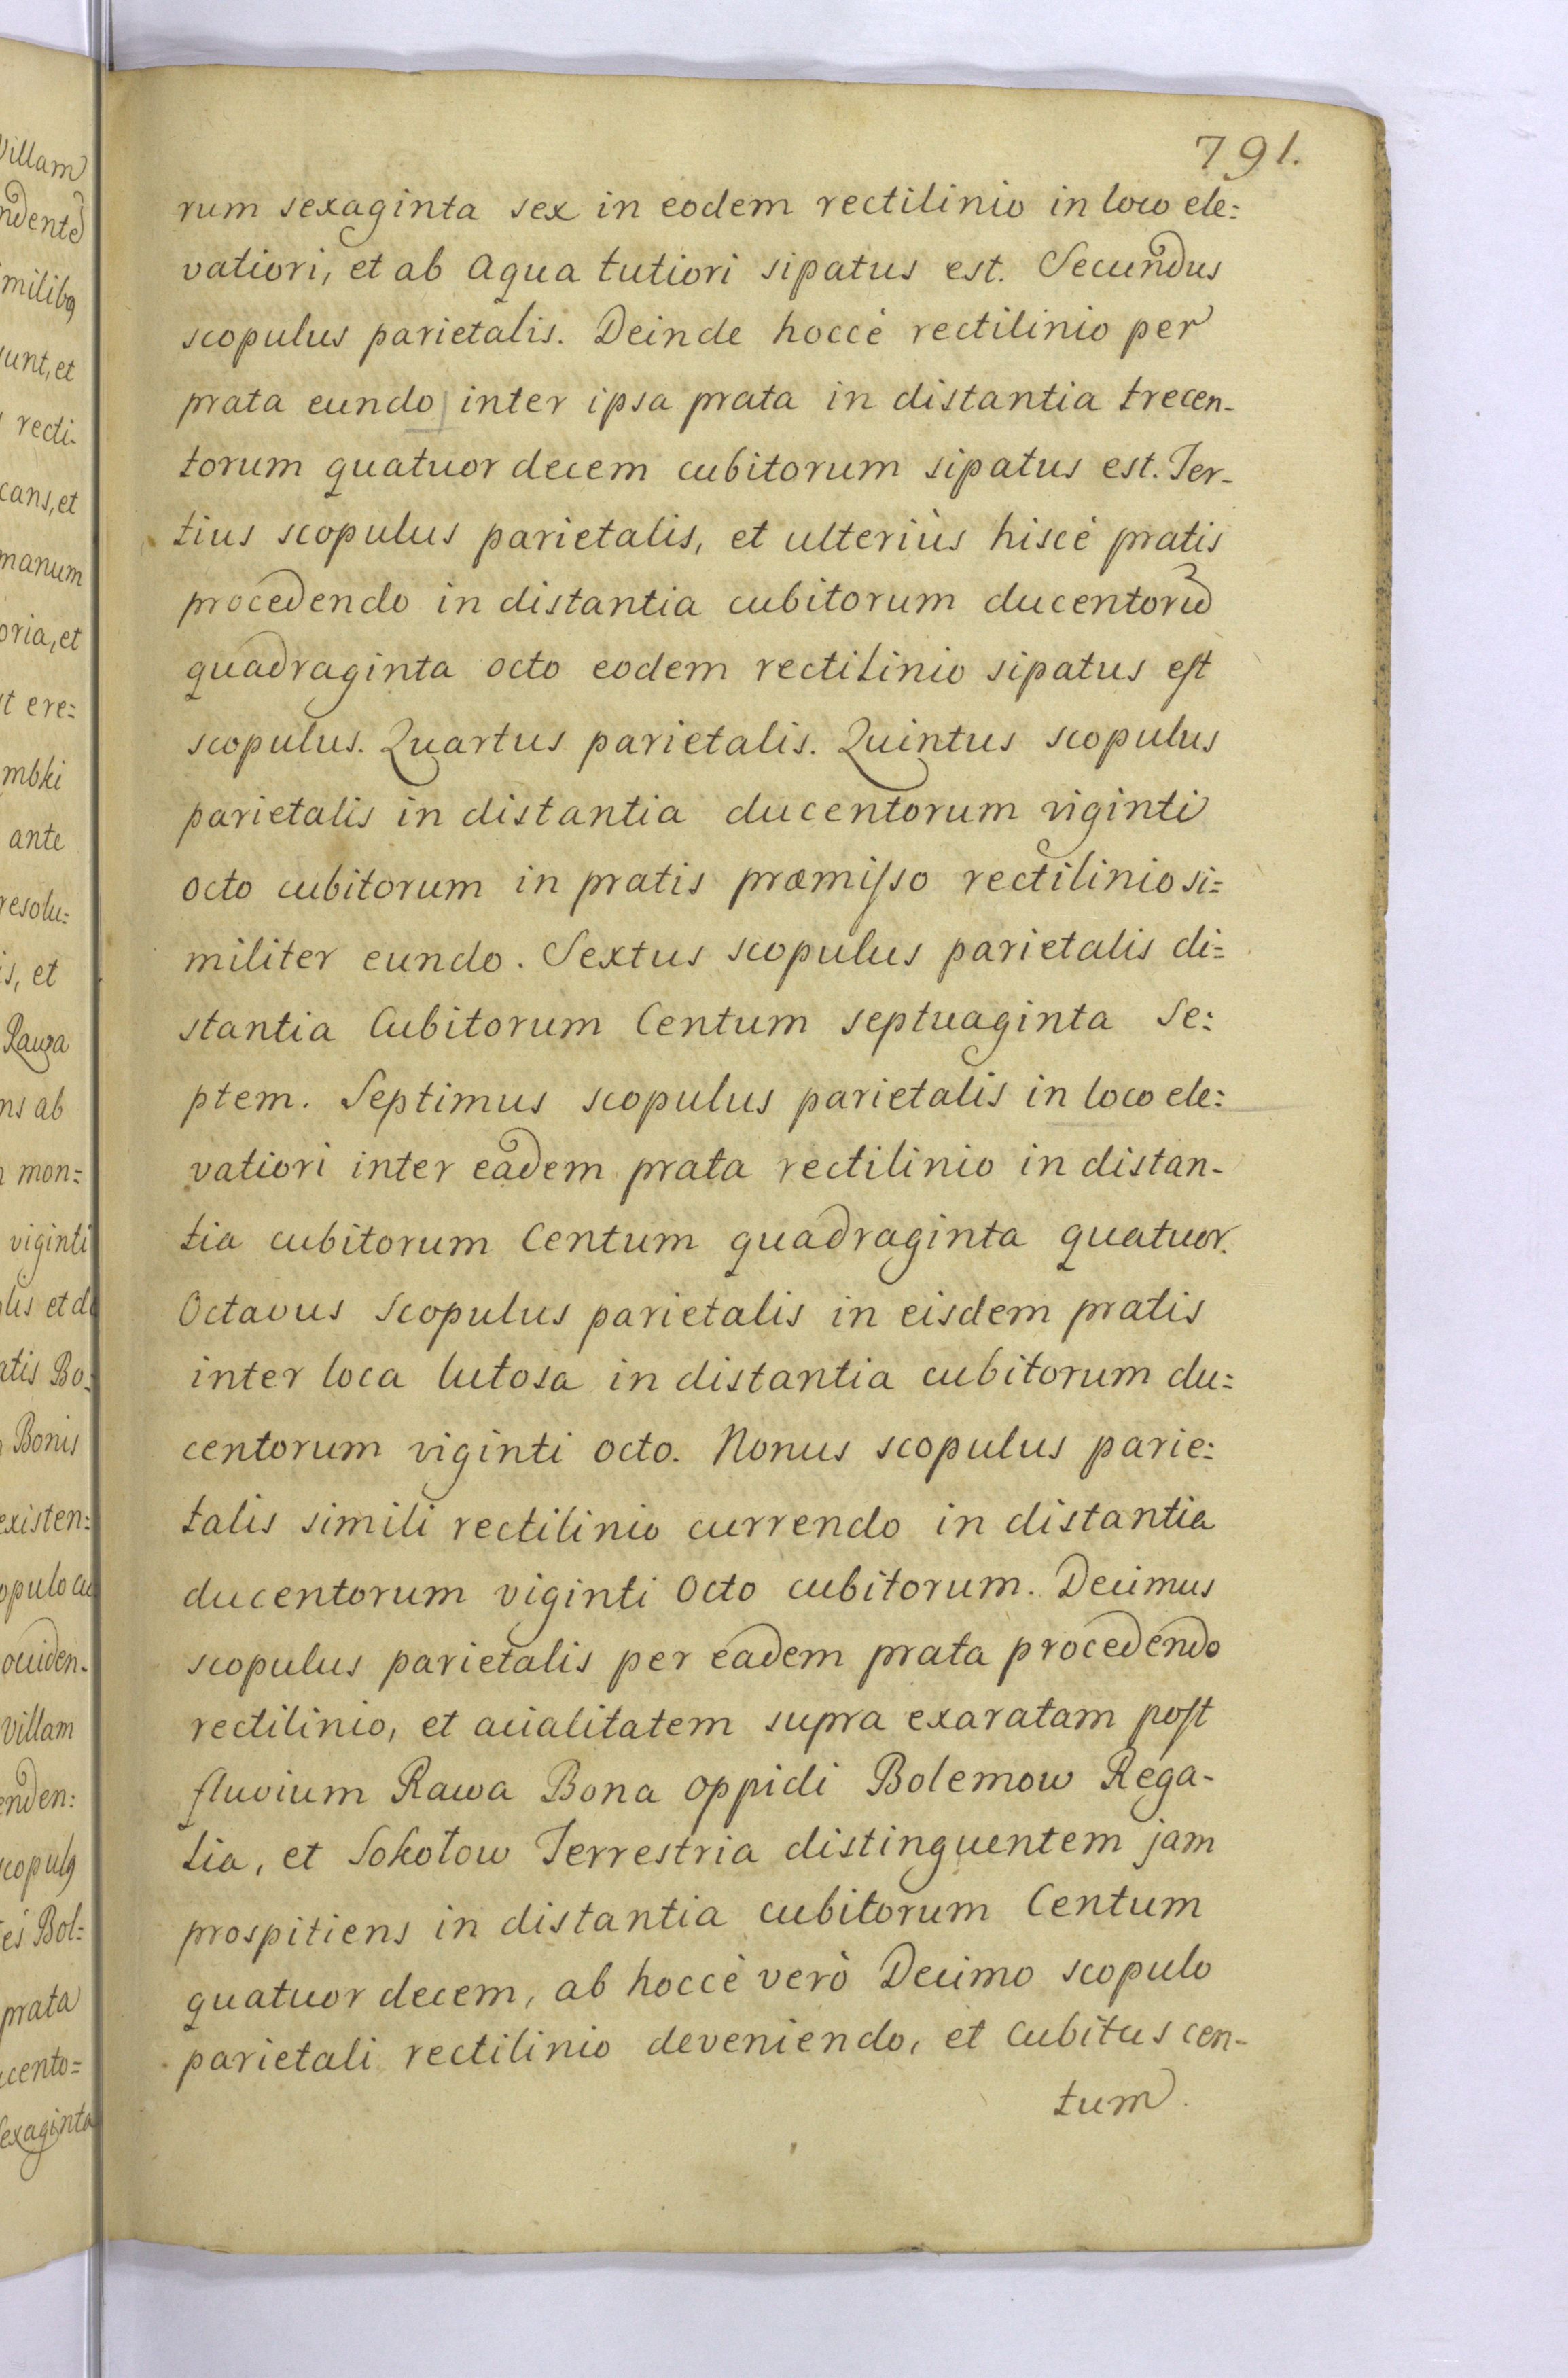 791.
rum sexaginta sex in eodem rectilinio in loco ele=
vatiori, et ab aqua tutiori sipatus est. Secundus
scopulus parietalis. Deinde hoccè rectilinio per
prata eundo inter ipsa prata in distantia trecen-
torum quatuor decem cubitorum sipatus est. Ter-
tius scopulus parietalis, et ulteriùs hiscè pratis
procedendo in distantia cubitorum ducentorū
quadraginta octo eodem rectilinio sipatus est
scopulus. Quartus parietalis. Quintus scopulus
parietalis in distantia ducentorum viginti
octo cubitorum in pratis præmisso rectilinio si=
militer eundo. Sextus scopulus parietalis di=
stantia Cubitorum Centum septuaginta Se=
ptem. Septimus scopulus parietalis in loco ele=
vatiori inter eadem prata rectilinio in distan-
tia cubitorum Centum quadraginta quatuor.
Octavus Scopulus parietalis in eisdem pratis
inter loca lutosa in distantia cubitorum du=
centorum viginti octo. Nonus scopulus parie=
talis simili rectilinio currendo in distantia
ducentorum viginti Octo cubitorum. Decimus
scopulus parietalis per eadem prata procedendo
rectilinio, et acialitatem supra exaratam post
fluvium Rawa Bona Oppidi Bolemow Rega-
lia, et Sokołow Terrestria distinguentem jam
prospitiens in distantia cubitorum Centum
quatuor decem, ab hoccè verò Decimo scopulo
parietali rectilinio deveniendo, et Cubitus cen-
tum
Villam
ndentē
milibꝫ
sunt, et
recti-
cans, et
manum
oria, et
t ere=
mbki
ante
resolu=
is, et
Rawa
ns ab
mon=
viginti
lis et d
atis Bo=
Bonis
existen=
opulo cu
ociden-
villam
enden=
Bol=
prata
cento=
sexaginta